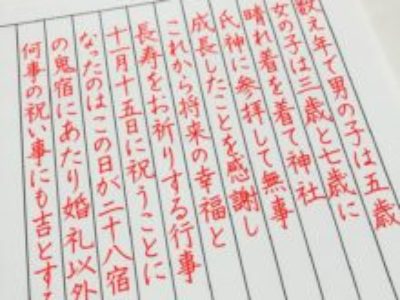 数え年で男の子は五歳
女の子は三歳と七歳に
晴れ着を着て神社
氏神に参拝して無事
成長したことを感謝し
これから将来の幸福と
長寿をお祈りする行事
十一月十五日に祝うことに
なったのはこの日が二十八宿
の鬼宿にあたり婚礼以外
何事の祝い事にも吉とする